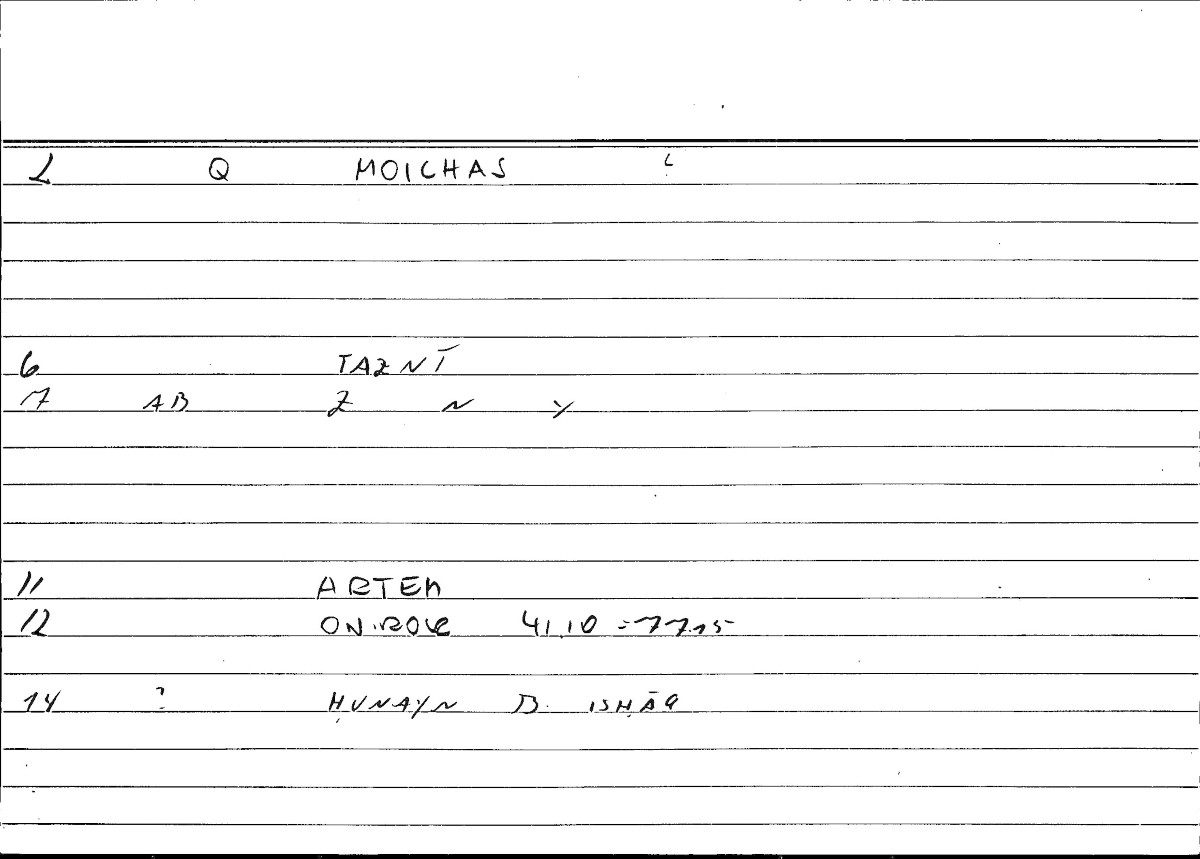 2 Q MOICHAS ?
6 TAZNĪ
7 AB Z N Y
11 ARTEM
12 ONIROCR 41,10 = 77.15
14 ? ḤUNAYN B. ISḤĀQ